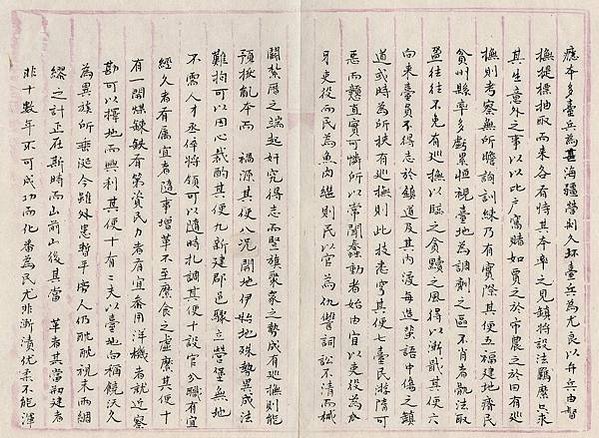 癒本多臺兵為甚海疆營制久坏臺兵為尤良以弁兵由督
撫提標抽取而來各有恃其本率之見鎮將設法羈縻只求
其生意外之事以以比户窩賭如賈之於市農之於田有巡
撫則考察無所瞻詢訓練乃有實際其便五福建地瘠民
貧州縣率多虧累恒視臺地為調劑之區不肖者骫法取
盈往往不免有巡撫以臨之貪黷之風得以漸戢其便六
向來臺員不得志於鎮道及其內渡每造蜚語中傷之鎮
道或時為所挾有巡撫則此技悉窮其便七臺民游隋可
惡而戇直實可憐所以常聞蠢動者始由官以吏役為爪
牙吏役而民為魚肉繼則民以官為仇讐詞訟不清而械
鬪紮厝之端起奸宄得志而竪旗聚衆之勢成有巡撫則能
預拔亂本而禍源其便八況開地伊始地殊勢異成法
難拘可以因心裁酌其便九新建郡邑驟立營堡無地
不需人才丞倅將領可以隨時札調其便十設官分職有宜
經久者有属宜者隨事增革不至廩食之虛縻其便十
有一開煤鍊鉄有第資民力者有宜叅用洋機者就近察
勘可以擇地而興利其便十有二夫以臺地向稱饒沃久
為異族所垂涎今雖外患暫平旁人仍眈眈視未雨綢
繆之計正在斯時而山前山後其當革者其當刱建者
非十數年不可成功而化番為民尤非漸漬优柔不能渾